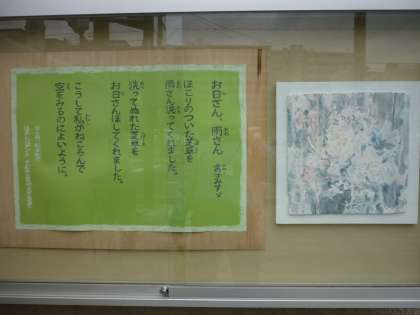 お日さん、雨さん
金子みすゞ
ほこりのついた芝草を
雨さん洗ってくれました。
洗ってぬれた芝草を
お日さんほしてくれました。
こうして私がねころんで
空をみるのによいように。